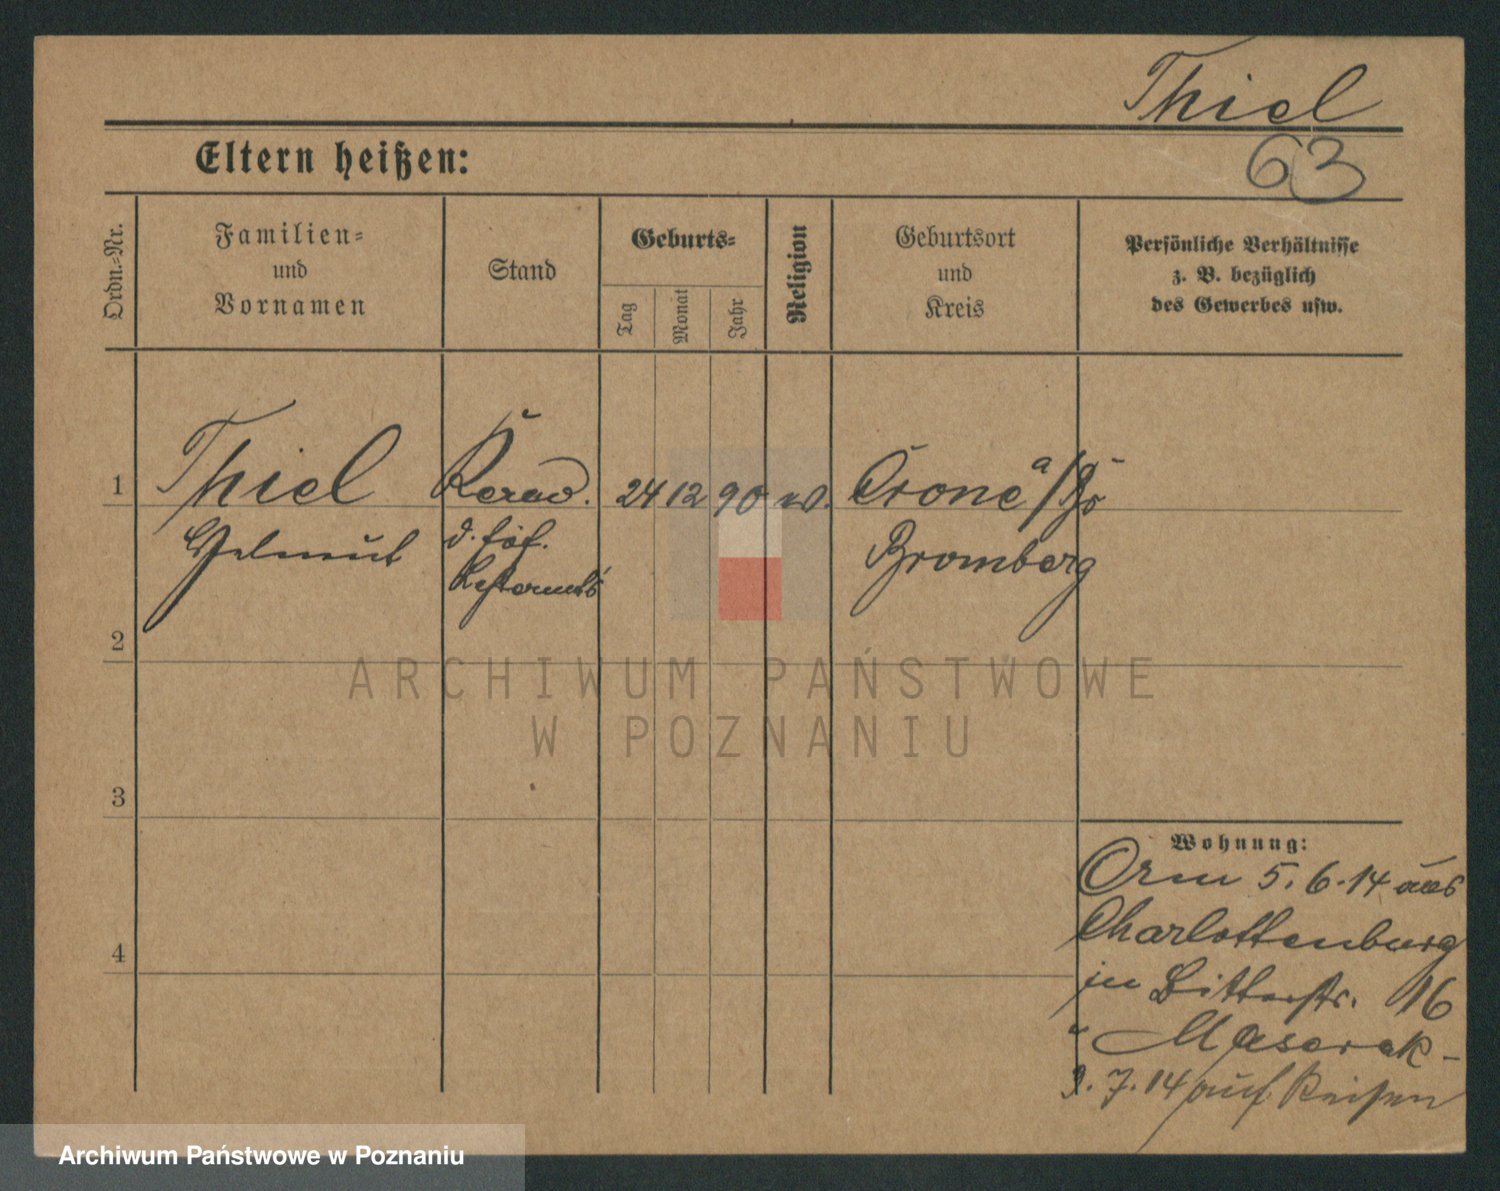 Thiel
63
Eltern heißen:
Ordn.-Nr.
Familien-
und
Vornamen
Stand
Geburts-
Tag
Monat
Jahr
Religion
Geburtsort
und
Kreis
Persönliche Verhältnisse
z. B. bezüglich
des Gewerbes usw.
1
Thiel
24 12 90
Crone a/Br
Helmut
d.
Bromberg
2
ARCHIWUM PAŃSTWOWE
W POZNANIU
3
Wohnung:
5. 6. 14 aus
Charlottenburg
in Ritterstr. 16
4
7. 14 auf Reisen
Archiwum Państwowe w Poznaniu